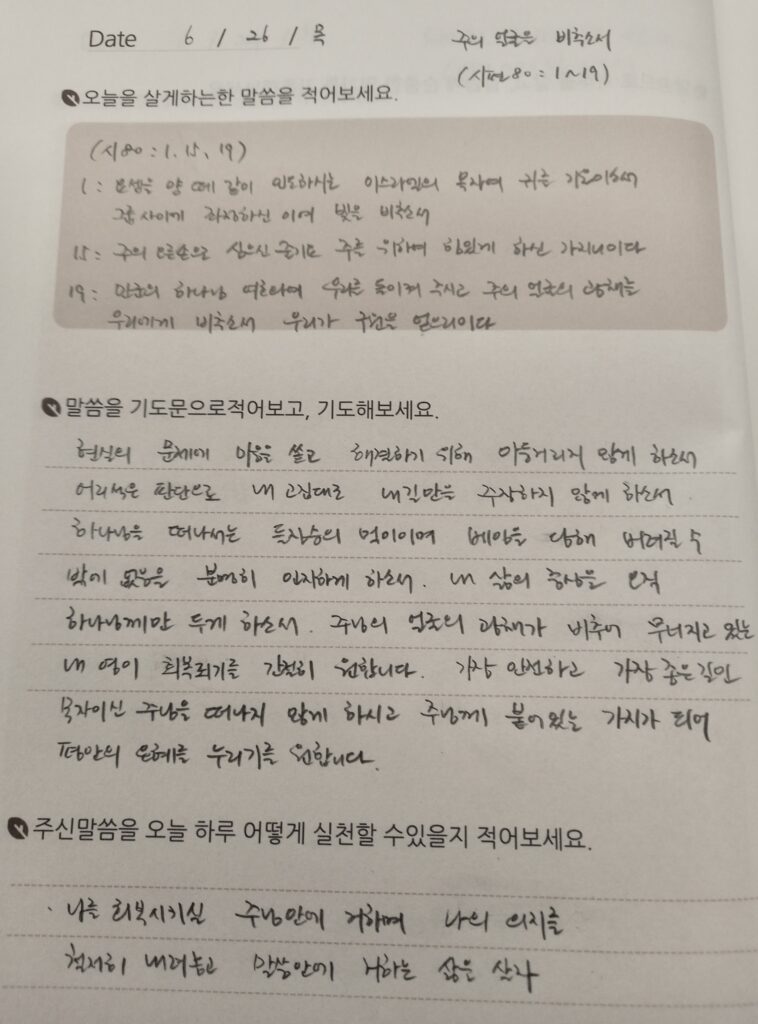 Date 6 / 26 / 목
주의 얼굴을 비추소서
(시편 80 : 1~19)
오늘을 살게하는한 말씀을 적어보세요.
(시80 : 1, 15, 19)
1 : 요셉을 양 떼 같이 인도하시는 이스라엘의 목자여 귀를 기울이소서
그룹 사이에 좌정하신 이여 빛을 비추소서
15 : 주의 오른손으로 심으신 줄기요 주를 위하여 힘있게 하신 가지니이다
19 : 만군의 하나님 여호와여 우리를 돌이켜 주시고 주의 얼굴의 광채를
우리에게 비추소서 우리가 구원을 얻으리이다
말씀을 기도문으로적어보고, 기도해보세요.
현실의 문제에 마음을 쏟고 해결하기 위해 아둥거리지 않게 하소서
어리석은 판단으로 내 고집대로 내길만을 주장하지 않게 하소서.
하나님을 떠나서는 들짐승의 먹이이며 베임을 당해 버려질 수
밖에 없음을 분명히 인지하게 하소서. 내 삶의 중심을 오직
하나님께만 두게 하소서. 주님의 얼굴의 광채가 비추어 무너지고 있는
내 영이 회복되기를 간절히 원합니다. 가장 안전하고 가장 좋은길인
목자이신 주님을 떠나지 않게 하시고 주님께 붙어있는 가지가 되어
평안의 은혜를 누리기를 원합니다.
주신말씀을 오늘 하루 어떻게 실천할 수있을지 적어보세요.
· 나를 회복시키실 주님안에 거하며 나의 의지를
철저히 내려놓고 말씀안에 거하는 삶을 살자